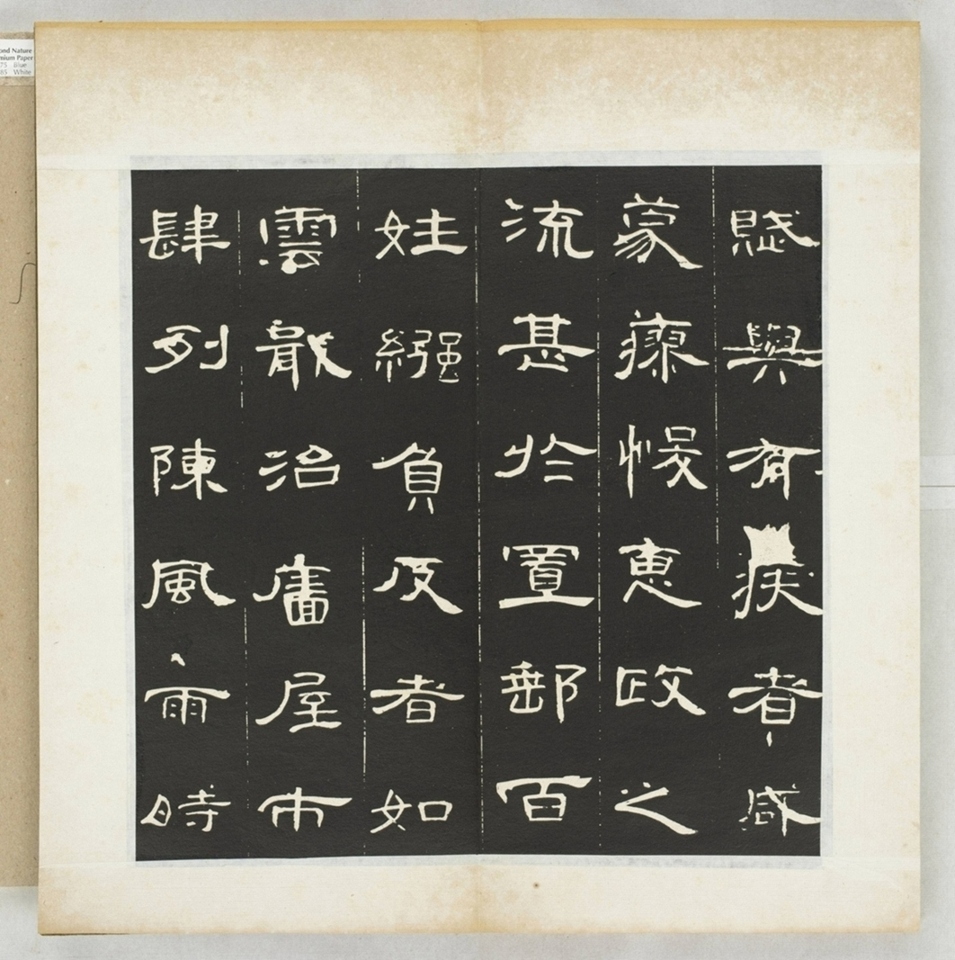 賦與有疾者咸
蒙瘳悛惠政之
流甚於置郵百
姓繈負反者如
雲戢治廧屋市
肆列陳風雨時
ond Nature
mium Paper
75 Blue
85 White